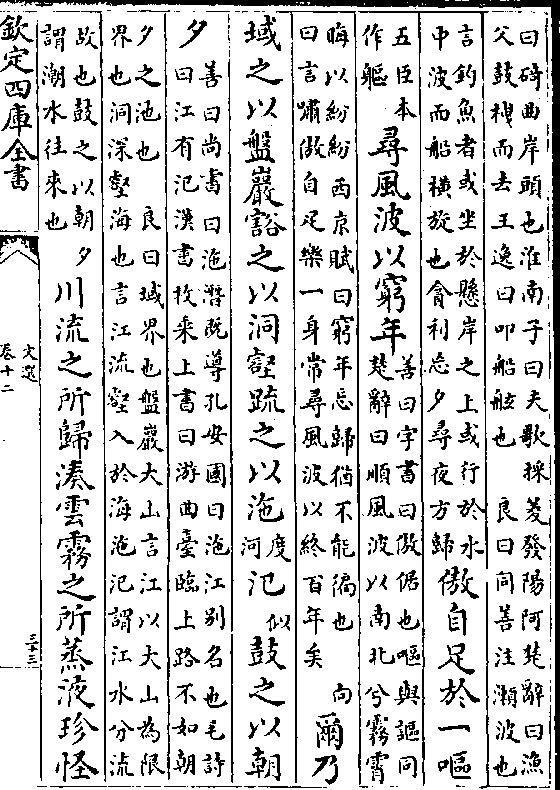 曰碕曲岸頭也淮南子曰夫歌採菱發陽阿楚辭曰漁
父鼓枻而去王逸曰叩船舷也 良曰同善注瀨波也
言釣魚者或坐於懸岸之上或行於水
中波而船橫旋也會利忘夕尋夜方歸
傲自足於一嘔
五臣本
作軀
尋風波以窮年
善曰字書曰傲倨也嘔與謳同
楚辭曰順風波以南北兮霧霄
晦以紛紛西京賦曰窮年忘歸猶不能徧也 向
曰言嘯傲自足樂一身常尋風波以終百年矣
爾乃
域之以盤巖豁之以洞壑疏之以沲
度
河
氾
似
鼓之以朝
夕
善曰尚書曰沲濳既導孔安國曰沲江別名也毛詩
曰江有汜漢書枚乘上書曰游曲臺臨上路不如朝
夕之池也 良曰域界也盤巖大山言江以大山為限
界也洞深壑海也言江流壑入於海沲汜謂江水分流
故也鼓之以朝夕
謂潮水往來也
川流之所歸湊雲霧之所蒸液珍怪
欽定四庫全書
文選
卷十二
三十三